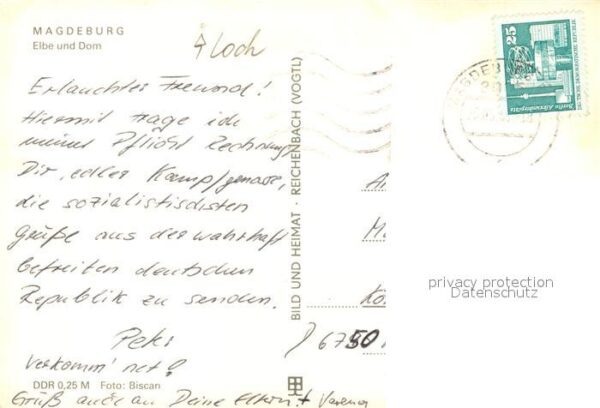 MAGDEBURG
Elbe und Dom
Erlauchter Freund!
Hiermit trage ich
meiner Pflicht Rechnung
Dir, edler Kampfgenosse,
die sozialistischsten
Grüße aus der wahrhaft
befreiten deutschen
Republik zu senden.
Verkomm' net!
DDR 0,25 M Foto: Biscan
Gruß auch an Deine Eltern + Verena
BILD UND HEIMAT · REICHENBACH (VOGTL)
25
Berlin, Alexanderplatz
DEUTSCHE DEMOKRATISCHE REPUBLIK
D 6750
privacy protection
Datenschutz